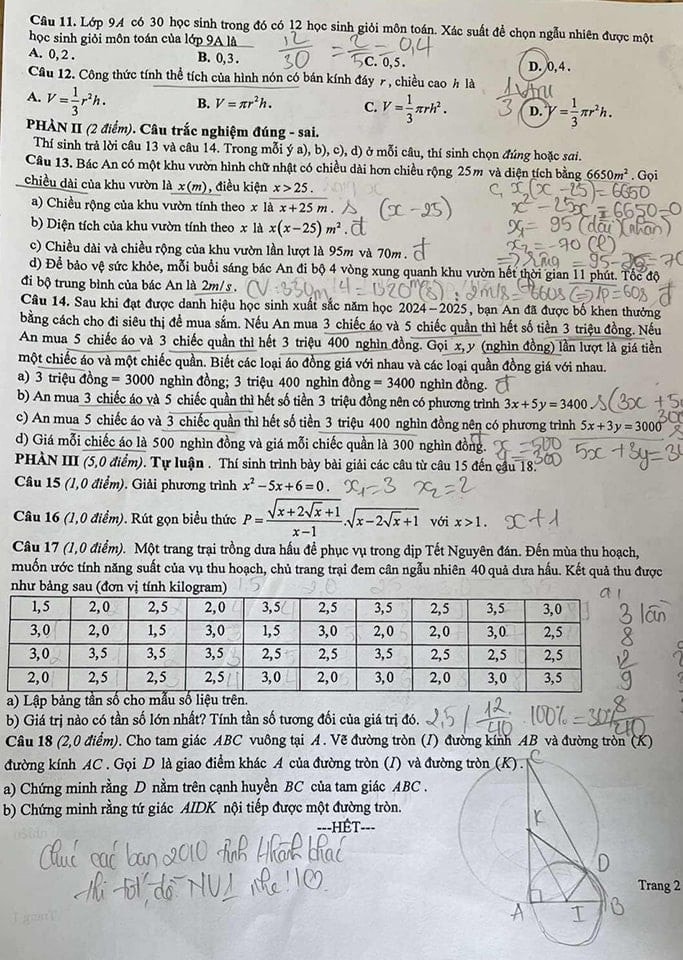 Câu 11. Lớp 9A có 30 học sinh trong đó có 12 học sinh giỏi môn toán. Xác suất để chọn ngẫu nhiên được một
học sinh giỏi môn toán của lớp 9A là 12/30 = 2/5 = 0,4
A. 0,2. B. 0,3. C. 0,5. D. 0,4.
Câu 12. Công thức tính thể tích của hình nón có bán kính đáy r, chiều cao h là
A. V = 1/3 r²h. B. V = πr²h. C. V = 1/3 πrh². D. V = 1/3 πr²h.
PHẦN II (2 điểm). Câu trắc nghiệm đúng - sai.
Thí sinh trả lời câu 13 và câu 14. Trong mỗi ý a), b), c), d) ở mỗi câu, thí sinh chọn đúng hoặc sai.
Câu 13. Bác An có một khu vườn hình chữ nhật có chiều dài hơn chiều rộng 25m và diện tích bằng 6650m². Gọi
chiều dài của khu vườn là x(m), điều kiện x > 25. c, x(x-25) = 6650
a) Chiều rộng của khu vườn tính theo x là x + 25 m. s (x-25) x² - 25x - 6650=0
b) Diện tích của khu vườn tính theo x là x(x-25) m². đ x₁ = 95 (dài) (nhận)
c) Chiều dài và chiều rộng của khu vườn lần lượt là 95m và 70m. đ x₂ = -70 (l)
d) Để bảo vệ sức khỏe, mỗi buổi sáng bác An đi bộ 4 vòng xung quanh khu vườn hết thời gian 11 phút. Tốc độ
đi bộ trung bình của bác An là 2m/s.
Câu 14. Sau khi đạt được danh hiệu học sinh xuất sắc năm học 2024 – 2025, bạn An đã được bố khen thưởng
bằng cách cho đi siêu thị để mua sắm. Nếu An mua 3 chiếc áo và 5 chiếc quần thì hết số tiền 3 triệu đồng. Nếu
An mua 5 chiếc áo và 3 chiếc quần thì hết 3 triệu 400 nghìn đồng. Gọi x, y (nghìn đồng) lần lượt là giá tiền
một chiếc áo và một chiếc quần. Biết các loại áo đồng giá với nhau và các loại quần đồng giá với nhau.
a) 3 triệu đồng = 3000 nghìn đồng; 3 triệu 400 nghìn đồng = 3400 nghìn đồng. đ
b) An mua 3 chiếc áo và 5 chiếc quần thì hết số tiền 3 triệu đồng nên có phương trình 3x + 5y = 3400 s
c) An mua 5 chiếc áo và 3 chiếc quần thì hết số tiền 3 triệu 400 nghìn đồng nên có phương trình 5x + 3y = 3000
d) Giá mỗi chiếc áo là 500 nghìn đồng và giá mỗi chiếc quần là 300 nghìn đồng. đ
PHẦN III (5,0 điểm). Tự luận. Thí sinh trình bày bài giải các câu từ câu 15 đến câu 18.
Câu 15 (1,0 điểm). Giải phương trình x² – 5x + 6 = 0. x₁=3 x₂=2
Câu 16 (1,0 điểm). Rút gọn biểu thức P = √(x+2√x+1)/(x-1) . √(x-2√x+1) với x > 1. x+1
Câu 17 (1,0 điểm). Một trang trại trồng dưa hấu để phục vụ trong dịp Tết Nguyên đán. Đến mùa thu hoạch,
muốn ước tính năng suất của vụ thu hoạch, chủ trang trại đem cân ngẫu nhiên 40 quả dưa hấu. Kết quả thu được
như bảng sau (đơn vị tính kilogram)
1,5 2,0 2,5 2,0 3,5 2,5 3,5 2,5 3,5 3,0 3 lần
3,0 2,0 1,5 3,0 1,5 3,0 2,0 2,0 3,0 2,5 8
3,0 3,5 3,5 3,5 2,5 2,5 3,5 2,5 2,5 2,5 12
2,0 2,5 2,5 2,5 3,0 2,0 3,0 2,0 3,0 3,5 9
a) Lập bảng tần số cho mẫu số liệu trên. 8
b) Giá trị nào có tần số lớn nhất? Tính tần số tương đối của giá trị đó. 2,5 / 12/40 . 100% = 30%
Câu 18 (2,0 điểm). Cho tam giác ABC vuông tại A. Vẽ đường tròn (I) đường kính AB và đường tròn (K)
đường kính AC. Gọi D là giao điểm khác A của đường tròn (I) và đường tròn (K). C
a) Chứng minh rằng D nằm trên cạnh huyền BC của tam giác ABC.
b) Chứng minh rằng tứ giác AIDK nội tiếp được một đường tròn.
---HẾT---
K
Chúc các bạn 2010
D
thi tốt, đỗ NV1 nhe!!
Trang 2
A I B